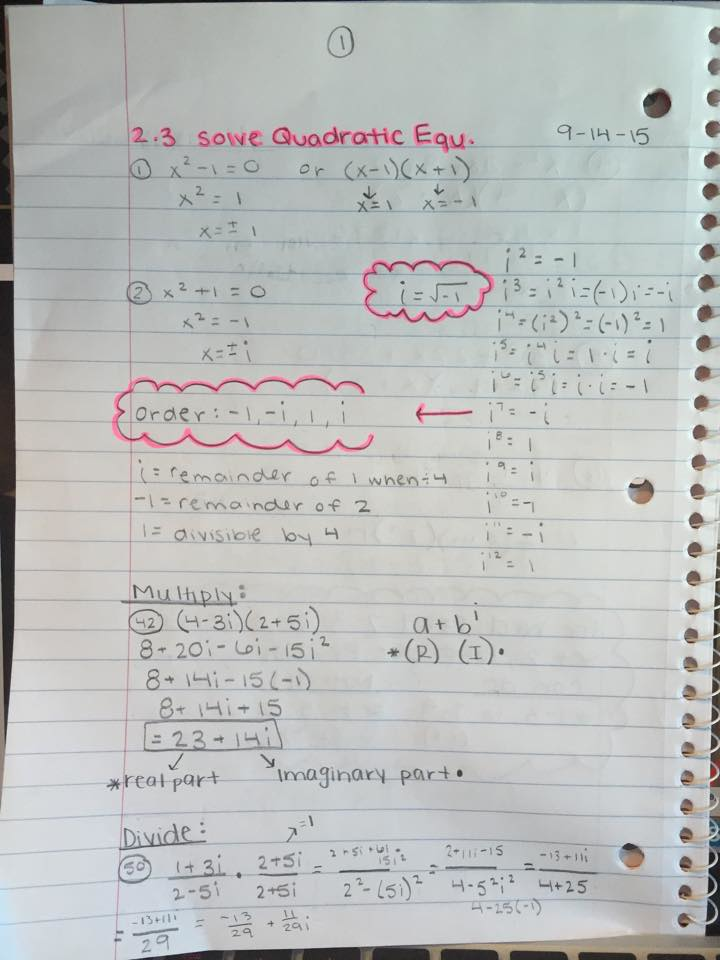 1
2.3 Solve Quadratic Equ. 9-14-15
① x² - 1 = 0 or (x-1)(x+1)
x² = 1 x=1 x=-1
x = ± 1
i² = -1
② x² + 1 = 0 i = √-1 i³ = i² i = (-1) i = -i
x² = -1 i⁴ = (i²)² = (-1)² = 1
x = ± i i⁵ = i⁴ i = 1 · i = i
i⁶ = i⁵ i = i · i = -1
order: -1, -i, 1, i ← i⁷ = -i
i⁸ = 1
i = remainder of 1 when ÷ 4 i⁹ = i
-1 = remainder of 2 i¹⁰ = -1
1 = divisible by 4 i¹¹ = -i
i¹² = 1
Multiply:
㊷ (4-3i)(2+5i) a + bⁱ
8 + 20i - 6i - 15i² *(R) (I).
8 + 14i - 15(-1)
8 + 14i + 15
= 23 + 14i
*real part imaginary part.
Divide: =1
㊿ (1+3i)/(2-5i) · (2+5i)/(2+5i) = (2+5i+6i 15i²)/(2²-(5i)²) = (2+11i-15)/(4-5²i²) = (-13+11i)/(4+25)
4-25(-1)
= (-13+11i)/29 = -13/29 + 11/29 i